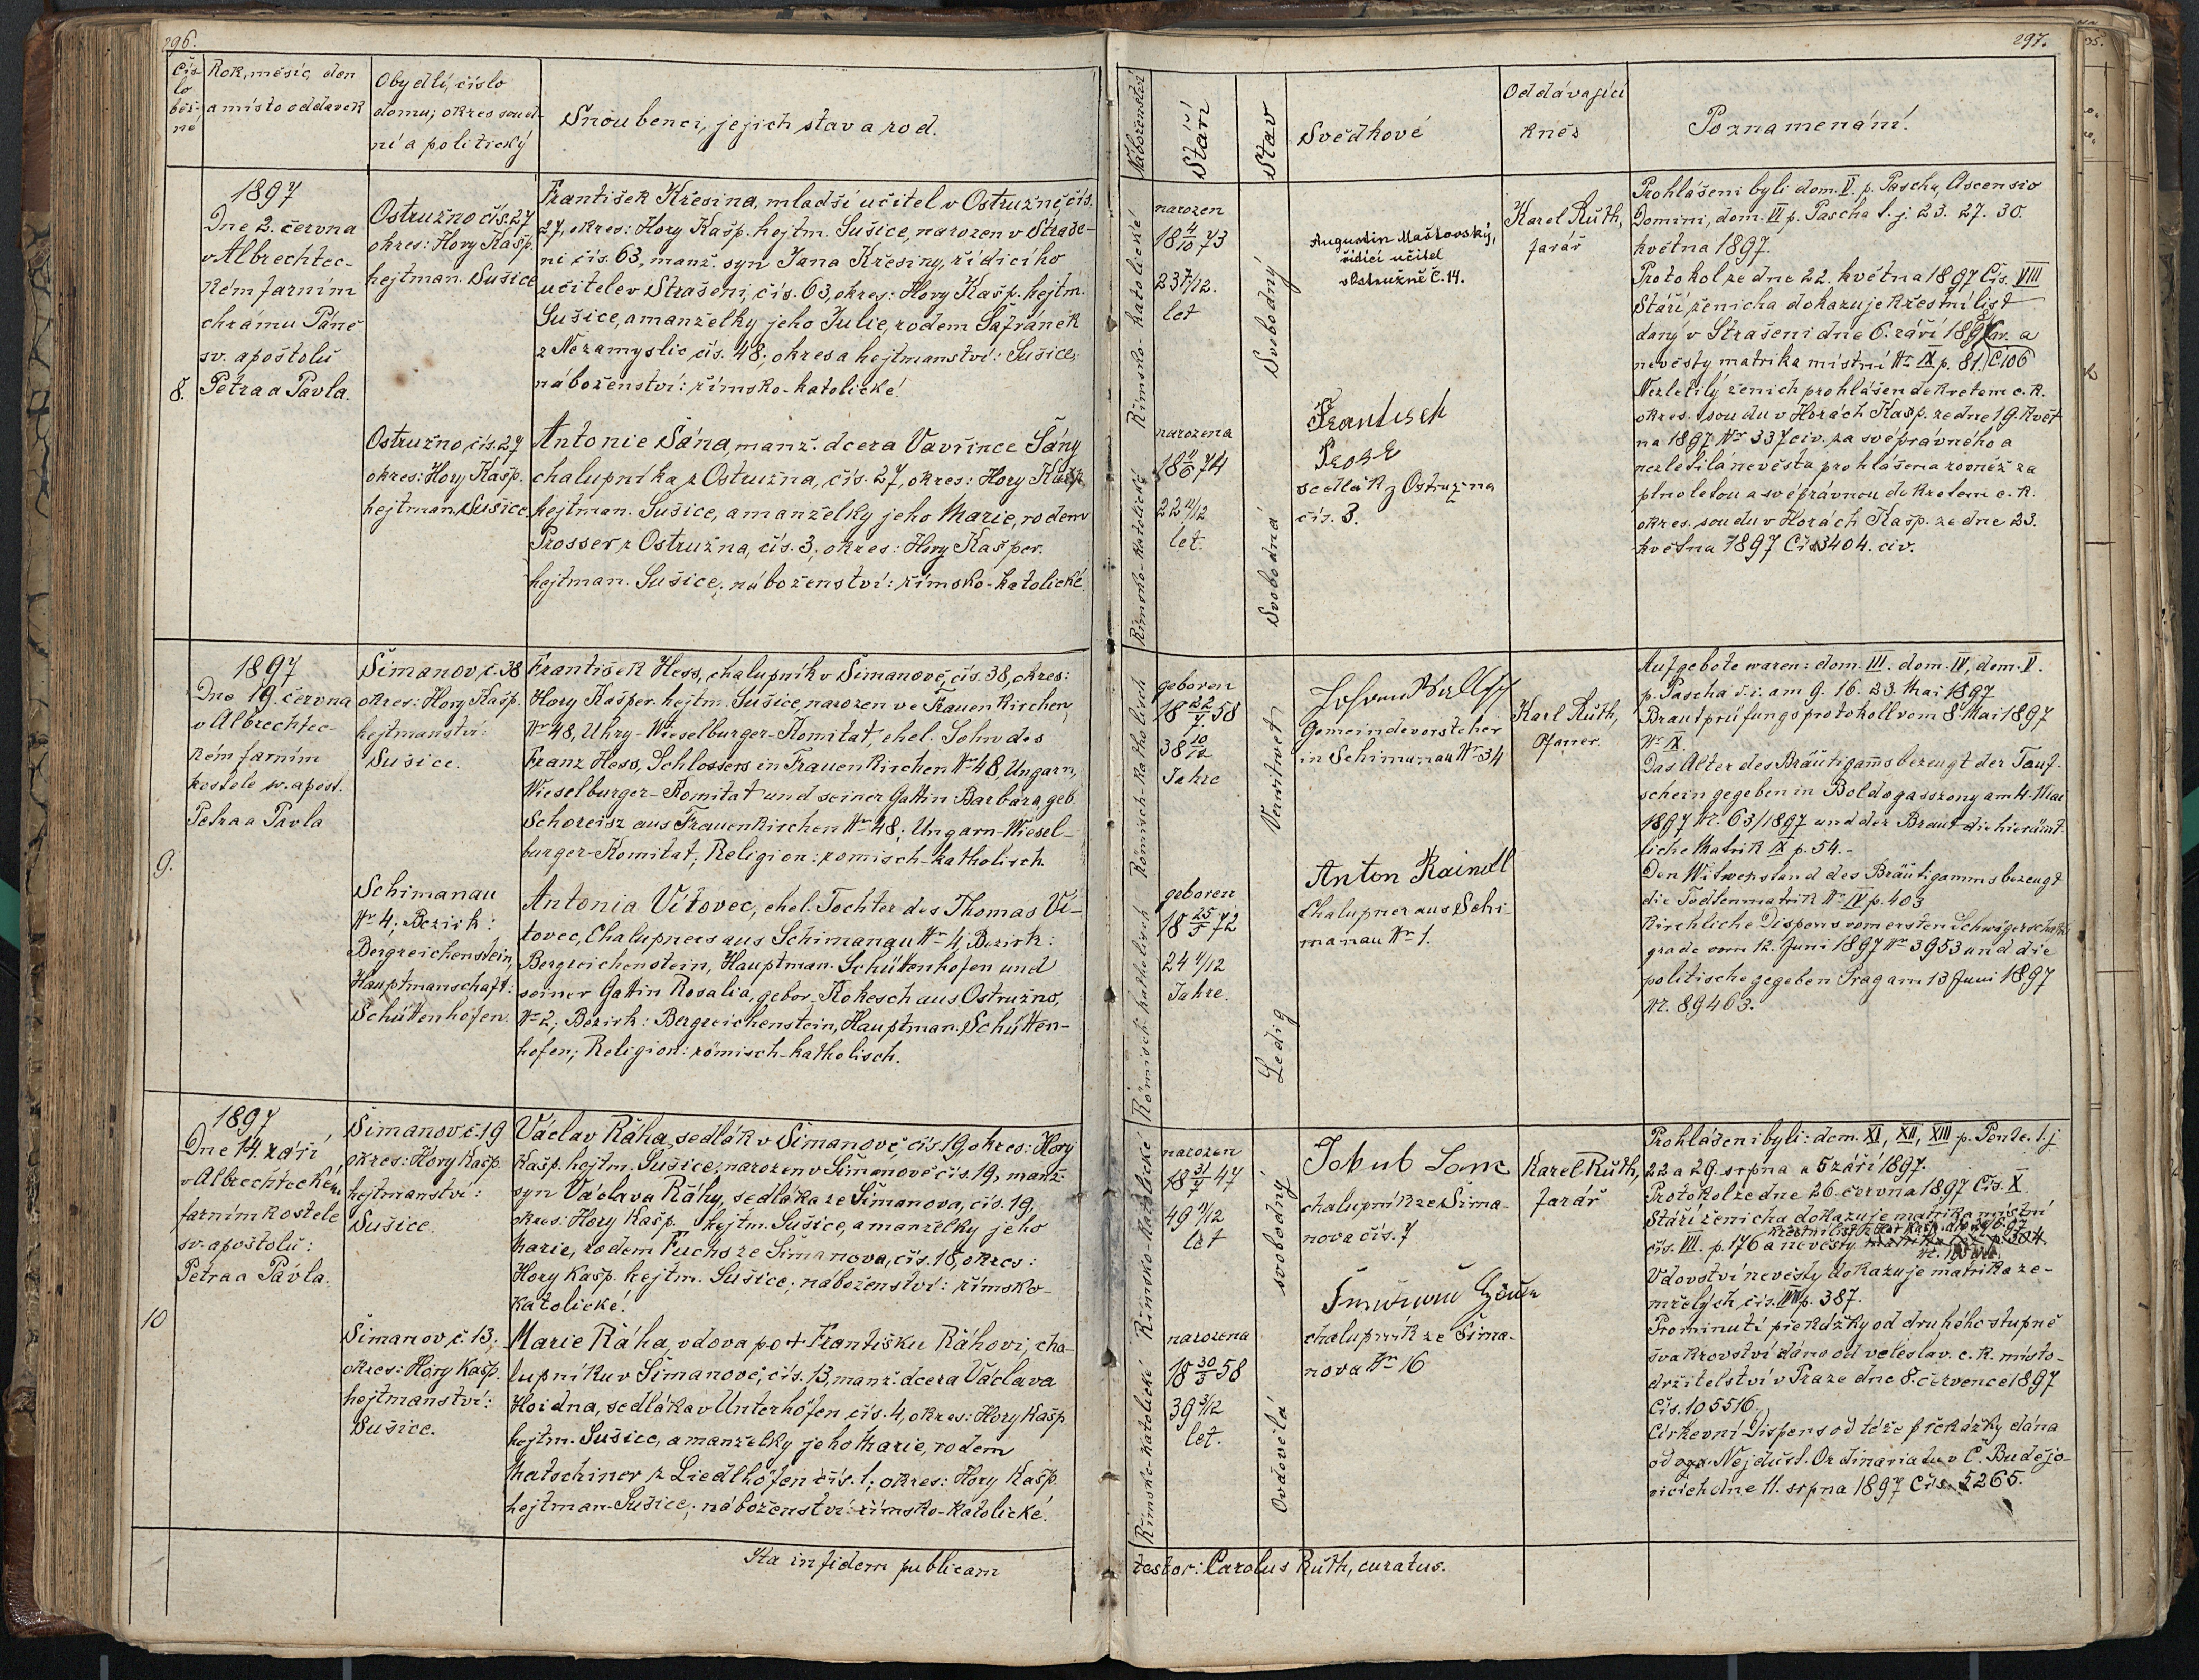 296.
Čís-
lo
běž-
né
Rok, měsíc, den
a místo oddavek
Obydlí, číslo
domu; okres soud-
ní a politický
Snoubenci, jejich stav a rod.
8.
1897
Dne 2. června
v Albrechtec-
kém farním
chrámu Páně
sv. apoštolů
Petra a Pavla.
Ostružno čís. 27
okres: Hory Kašp.
hejtman. Sušice
František Křesina, mladší učitel v Ostružně, čís.
27, okres: Hory Kašp. hejtm. Sušice, narozen v Straše-
ni čís. 63, manž. syn Jana Křesiny, řídícího
učitele v Strašeni, čís. 63, okres: Hory Kašp. hejtm.
Sušice, a manželky jeho Julie, rodem Šafránek
z Nezamyslic čís. 48; okres a hejtmanství: Sušice;
náboženství: římsko-katolické.
Ostružno čís. 27
okres: Hory Kašp.
hejtman. Sušice
Antonie Šána, manž. dcera Vavřince Šány
chalupníka z Ostružna, čís. 27, okres: Hory Kašp.
hejtman. Sušice, a manželky jeho Marie, rodem
Prosser z Ostružna, čís. 3, okres: Hory Kašper.
hejtman. Sušice; náboženství: římsko-katolické.
9.
1897
Dne 19. června
v Albrechtec-
kém farním
kostele sv. apošt.
Petra a Pavla
Šimanov, č. 38
okres: Hory Kašp.
hejtmanství:
Sušice.
František Hess, chalupník v Šimanově, čís. 38, okres:
Hory Kašper. hejtm. Sušice, narozen ve Frauenkirchen,
Nr 48, Uhry-Wieselburger-Komitat, ehel. Sohn des
Franz Hess, Schlossers in Frauenkirchen Nr 48 Ungarn,
Wieselburger-Komitat und seiner Gattin Barbara, geb.
Schoreisz aus Frauenkirchen Nr 48; Ungarn-Wiesel-
burger-Komitat; Religion: römisch-katholisch.
Schimanau
Nr 4; Bezirk:
Bergreichenstein,
Hauptmanschaft:
Schüttenhofen.
Antonia Vítovec, ehel. Tochter des Thomas Ví-
tovec, Chalupners aus Schimanau Nr 4; Bezirk:
Bergreichenstein, Hauptman. Schüttenhofen und
seiner Gattin Rosalia, gebor. Kokesch aus Ostružno,
Nr 2; Bezirk: Bergreichenstein, Hauptman. Schütten-
hofen; Religion: römisch-katholisch.
10
1897
Dne 14. září
v Albrechteckém
farním kostele
sv. apoštolů:
Petra a Pavla.
Šimanov, č. 19
okres: Hory Kašp.
hejtmanství:
Sušice.
Václav Ráha, sedlák v Šimanově, čís. 19, okres: Hory
Kašp. hejtm. Sušice, narozen v Šimanově čís. 19, manž.
syn Václava Ráhy, sedláka ze Šimanova, čís. 19,
okres: Hory Kašp. hejtm. Sušice, a manželky jeho
Marie, rodem Fuchs ze Šimanova, čís. 18, okres:
Hory Kašp. hejtm. Sušice; náboženství: římsko-
katolické.
Šimanov, č. 13.
okres: Hory Kašp.
hejtmanství:
Sušice.
Marie Ráha, vdova po + Františku Ráhovi, cha-
lupníku v Šimanově, čís. 13, manž. dcera Václava
Hoidna, sedláka v Unterhöfen čís. 4, okres: Hory Kašp.
hejtm. Sušice, a manželky jeho Marie, rodem
Matschiner z Liedlhöfen čís. 1; okres: Hory Kašp.
hejtman. Sušice; náboženství: římsko-katolické.
Ita in fidem publicam
297.
Náboženství
Stáří
Stav
Svědkové
Oddávající
kněz
Poznamenání.
Římsko-katolické
narozen
18 4/10 73
23 7/12.
let
Svobodný
Augustin Maštovský,
řídící učitel
v Ostružně Č. 14.
Karel Růth,
farář
Římsko-katolické
narozena
18 11/6 74
22 11/12
let.
Svobodná
František
sedlák z Ostružna
čís. 3.
Prohlášeni byli dom. V. p. Pascha, Ascensio
Domini, dom. VI p. Pascha t. j. 23. 27. 30.
května 1897.
Protokol ze dne 22. května 1897 Čís. VIII
Stáří ženicha dokazuje křestní list
daný v Strašeni dne 6. září 189 a
nevěsty matrika místní Nr IX p. 81. Č 106
Nezletilý ženich prohlášen dekretem c. k.
okres. soudu v Horách Kašp. ze dne 19. květ
na 1897 Nr 337 civ. za svéprávného a
nezletilá nevěsta prohlášena rovněž za
plnoletou a svéprávnou dekretem c. k.
okres. soudu v Horách Kašp. ze dne 23.
května 1897 Čís. 3404. civ.
Römisch-katholisch
geboren
18 22/7 58
38 10/12
Jahre
Verwitwet
Gemeindevorsteher
in Schimanau Nr 34
Karl Růth,
Pfarrer.
Römisch-katholisch
geboren
18 25/5 72
24 11/12
Jahre.
Ledig
Anton Raindl
Chalupner aus Schi-
manau Nr 1.
Aufgebote waren: dom. III. dom. IV, dom. V.
p. Pascha d. i. am 9. 16. 23. Mai 1897
Brautprüfungsprotokoll vom 8. Mai 1897
Nr IX.
Das Alter des Bräutigams bezeugt der Tauf-
schein gegeben in Boldogasszony am 4. Mai
1897 Nr. 63/1897 und der Braut die hierämt-
liche Matrik IX p. 54.-
Den Witwenstand des Bräutigamms bezeugt
die Todtenmatrik Nr IV p. 403
Kirchliche Dispens vom ersten Schwägerschafts
grade vom 12. Juni 1897 Nr 3953 und die
politische gegeben Prag am 13 Juni 1897
Nr. 89463.
Římsko-katolické
narozen
18 31/7 47
49 11/12
let
svobodný
Jakub
chalupník ze Šima-
nova čís. 7
Karel Růth,
farář
Římsko-katolické
narozena
18 30/5 58
39 3/12
let.
Ovdovělá
chalupník ze Šima-
nova Nr 16
Prohlášeni byli: dom. XI, XII, XIII p. Pente. t. j.
22 a 29. srpna a 5 září 1897.
Protokol ze dne 26. června 1897 Čís. X
Stáří ženicha dokazuje matrika místní
čís. VII. p. 176 a nevěsty
křestní list
Vdovství nevěsty dokazuje matrika ze-
mřelých čís. p. 387.
Prominutí překážky od druhého stupně
švakrovství dáno od veleslav. c. k. místo-
držitelství v Praze dne 8. července 1897
Čís. 105516.
Církevní Dispens od téže překážky dána
od Nejdůst. Ordinariatu v Č. Budějo-
vicích dne 11. srpna 1897 Čís. 5265.
testor: Carolus Růth, curatus.